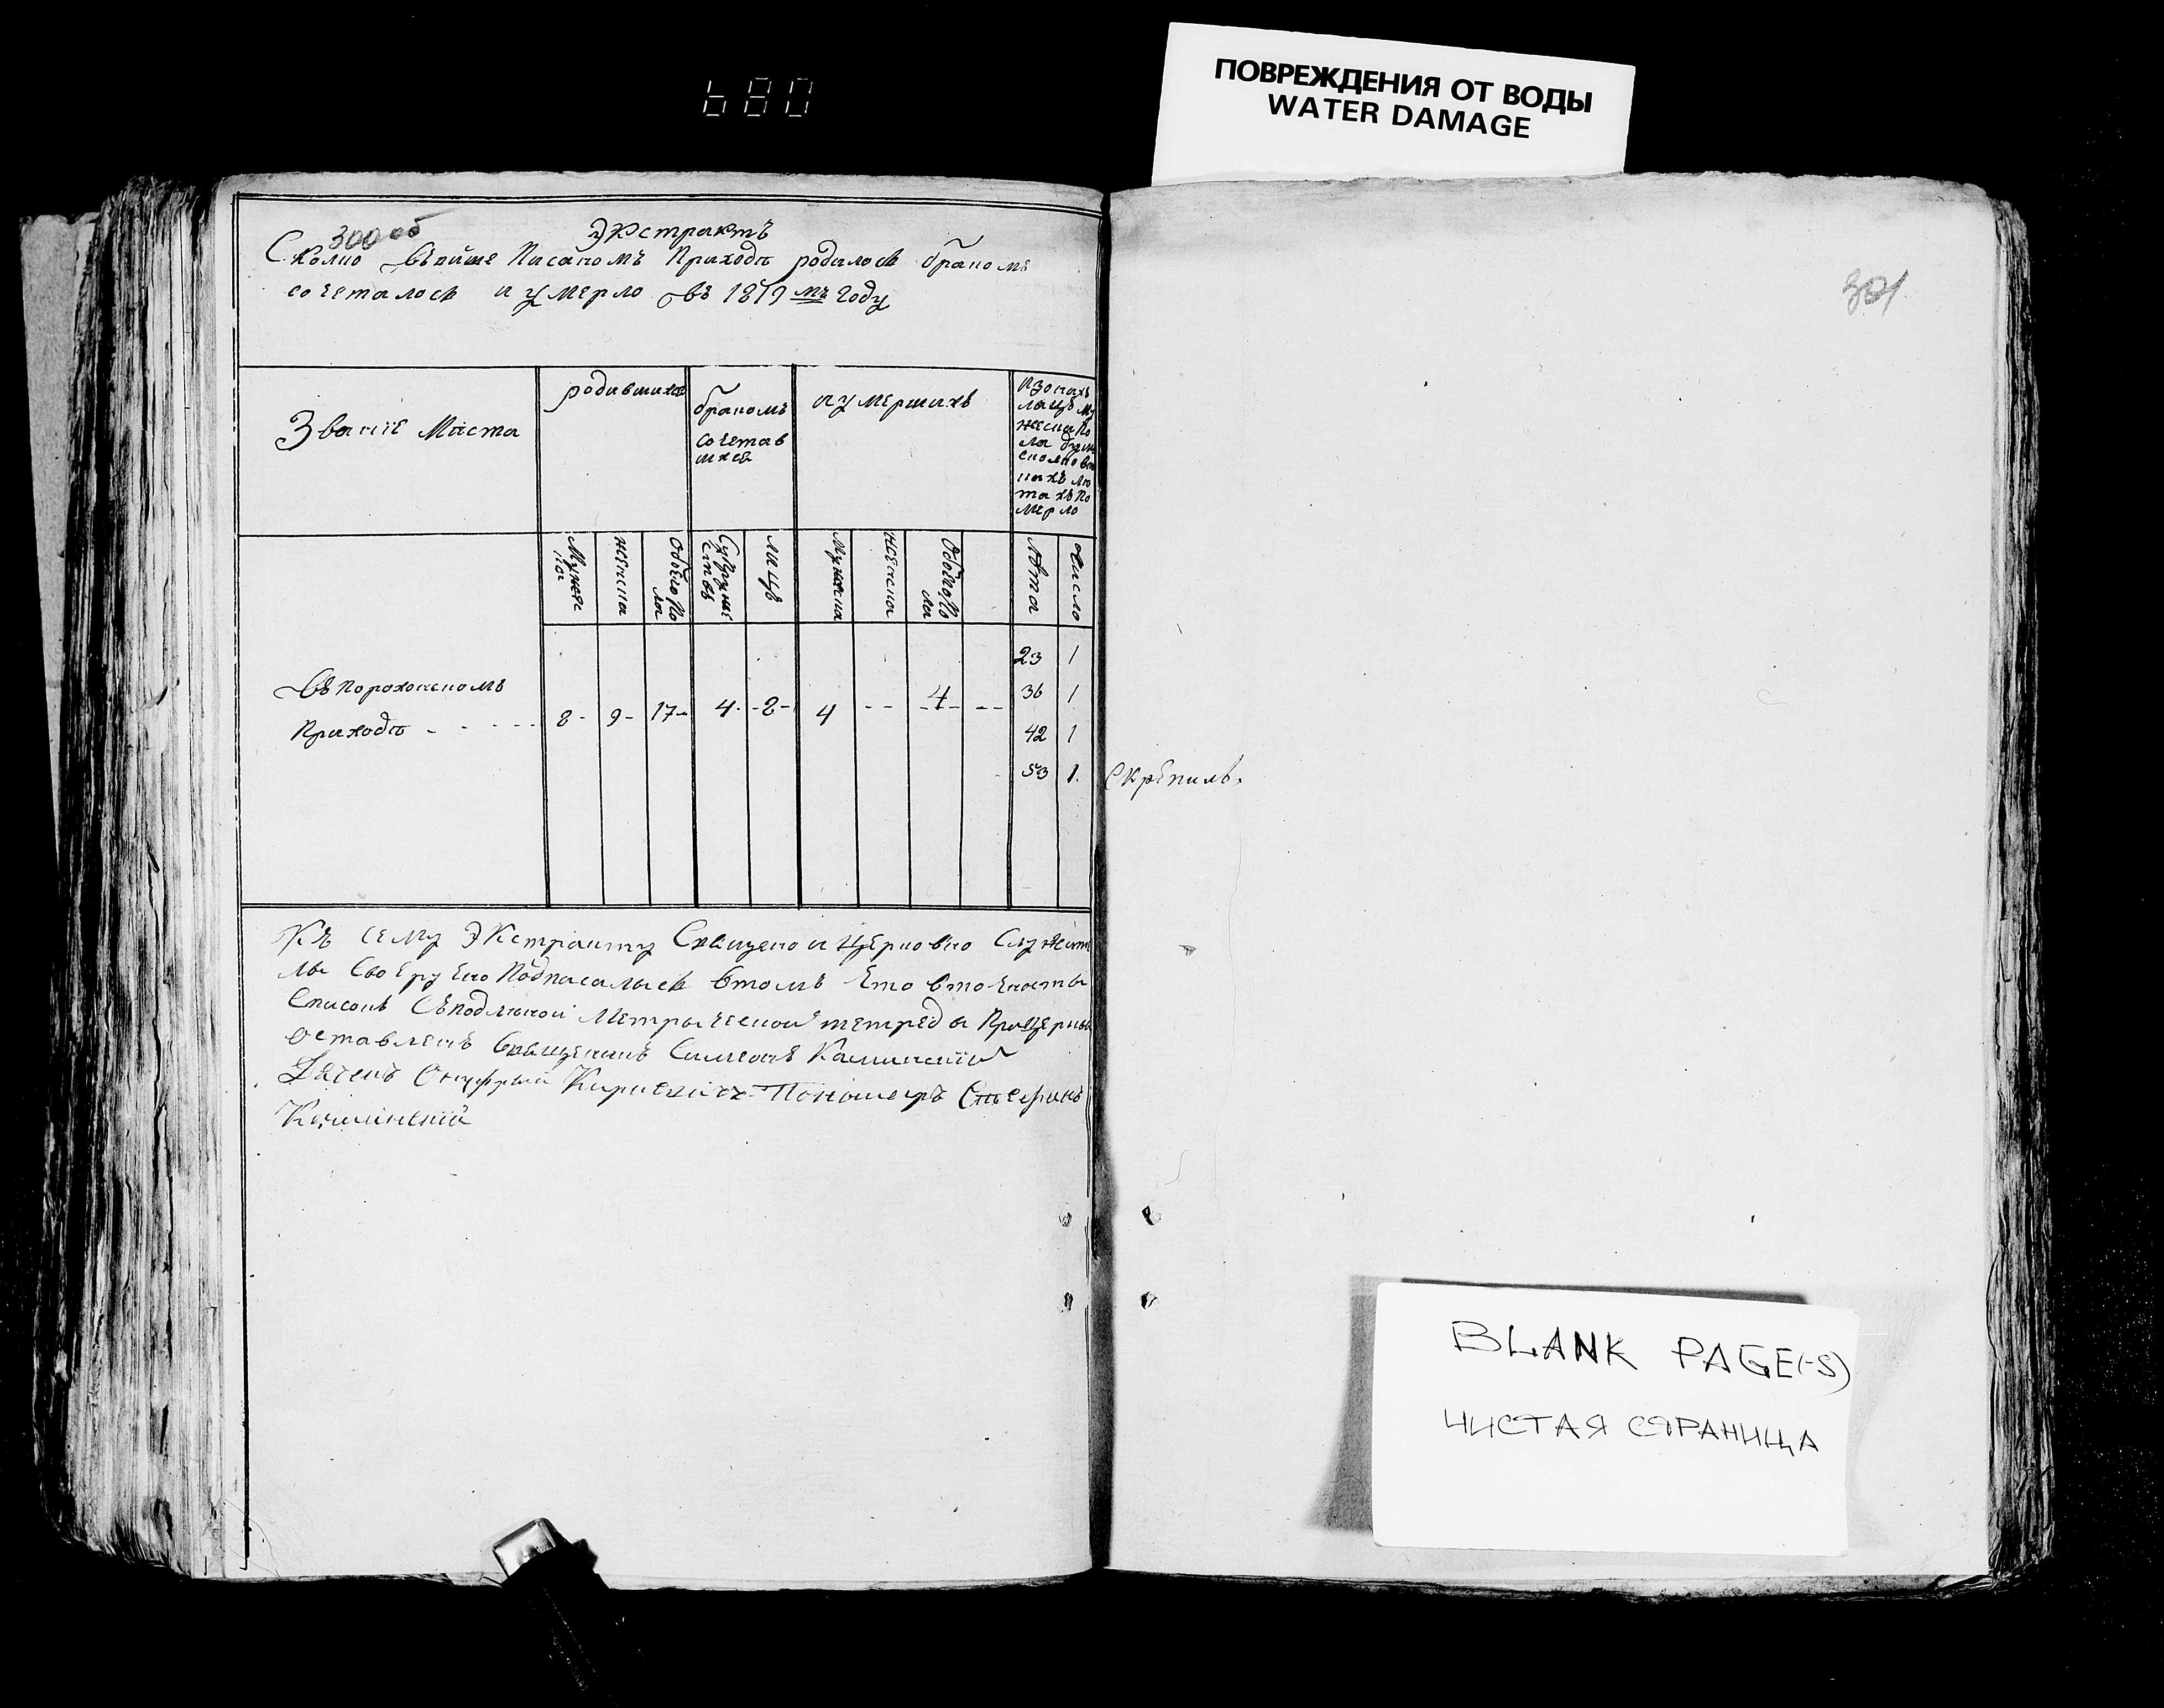 680
ПОВРЕЖДЕНИЯ ОТ ВОДЫ
WATER DAMAGE
300 об
Экстрактъ
Сколко Вышe Писаномъ Приходѣ родилось бракомъ
сочеталось и умерло въ 1819 мъ Году
Званiе Мѣста
родившихся
бракомъ
сочетав
шхся
и умершихъ
изонахъ
лицъ му
жеска по
ла
сколко
нахъ лѣ
тахъ по
мерло
Мужес
ка
женска
Обоего По
ла
Супруже
ствъ
лицъ
Мужска
женска
Обоего По
ла
Лѣта
Число
Въ Пороховскомъ
Приходѣ - - - - -
8 - 9 - 17 - 4 - 8 - 4 - - 4 - -
23 1
36 1
42 1
53 1
Къ сему Экстракту Священо и Церковно Служите
ли Своеручно Подписались Втомъ Что вточности
Списокъ Съподлиной Метрической тетреди Прицеркви
Оставленъ Священикъ Симеонъ Каминскiй
Дячекъ Онуфрiй Пономарь Стефанъ
Каминскiй
301
Скрепилъ.
BLANK PAGE(-S)
ЧИСТАЯ СТРАНИЦА